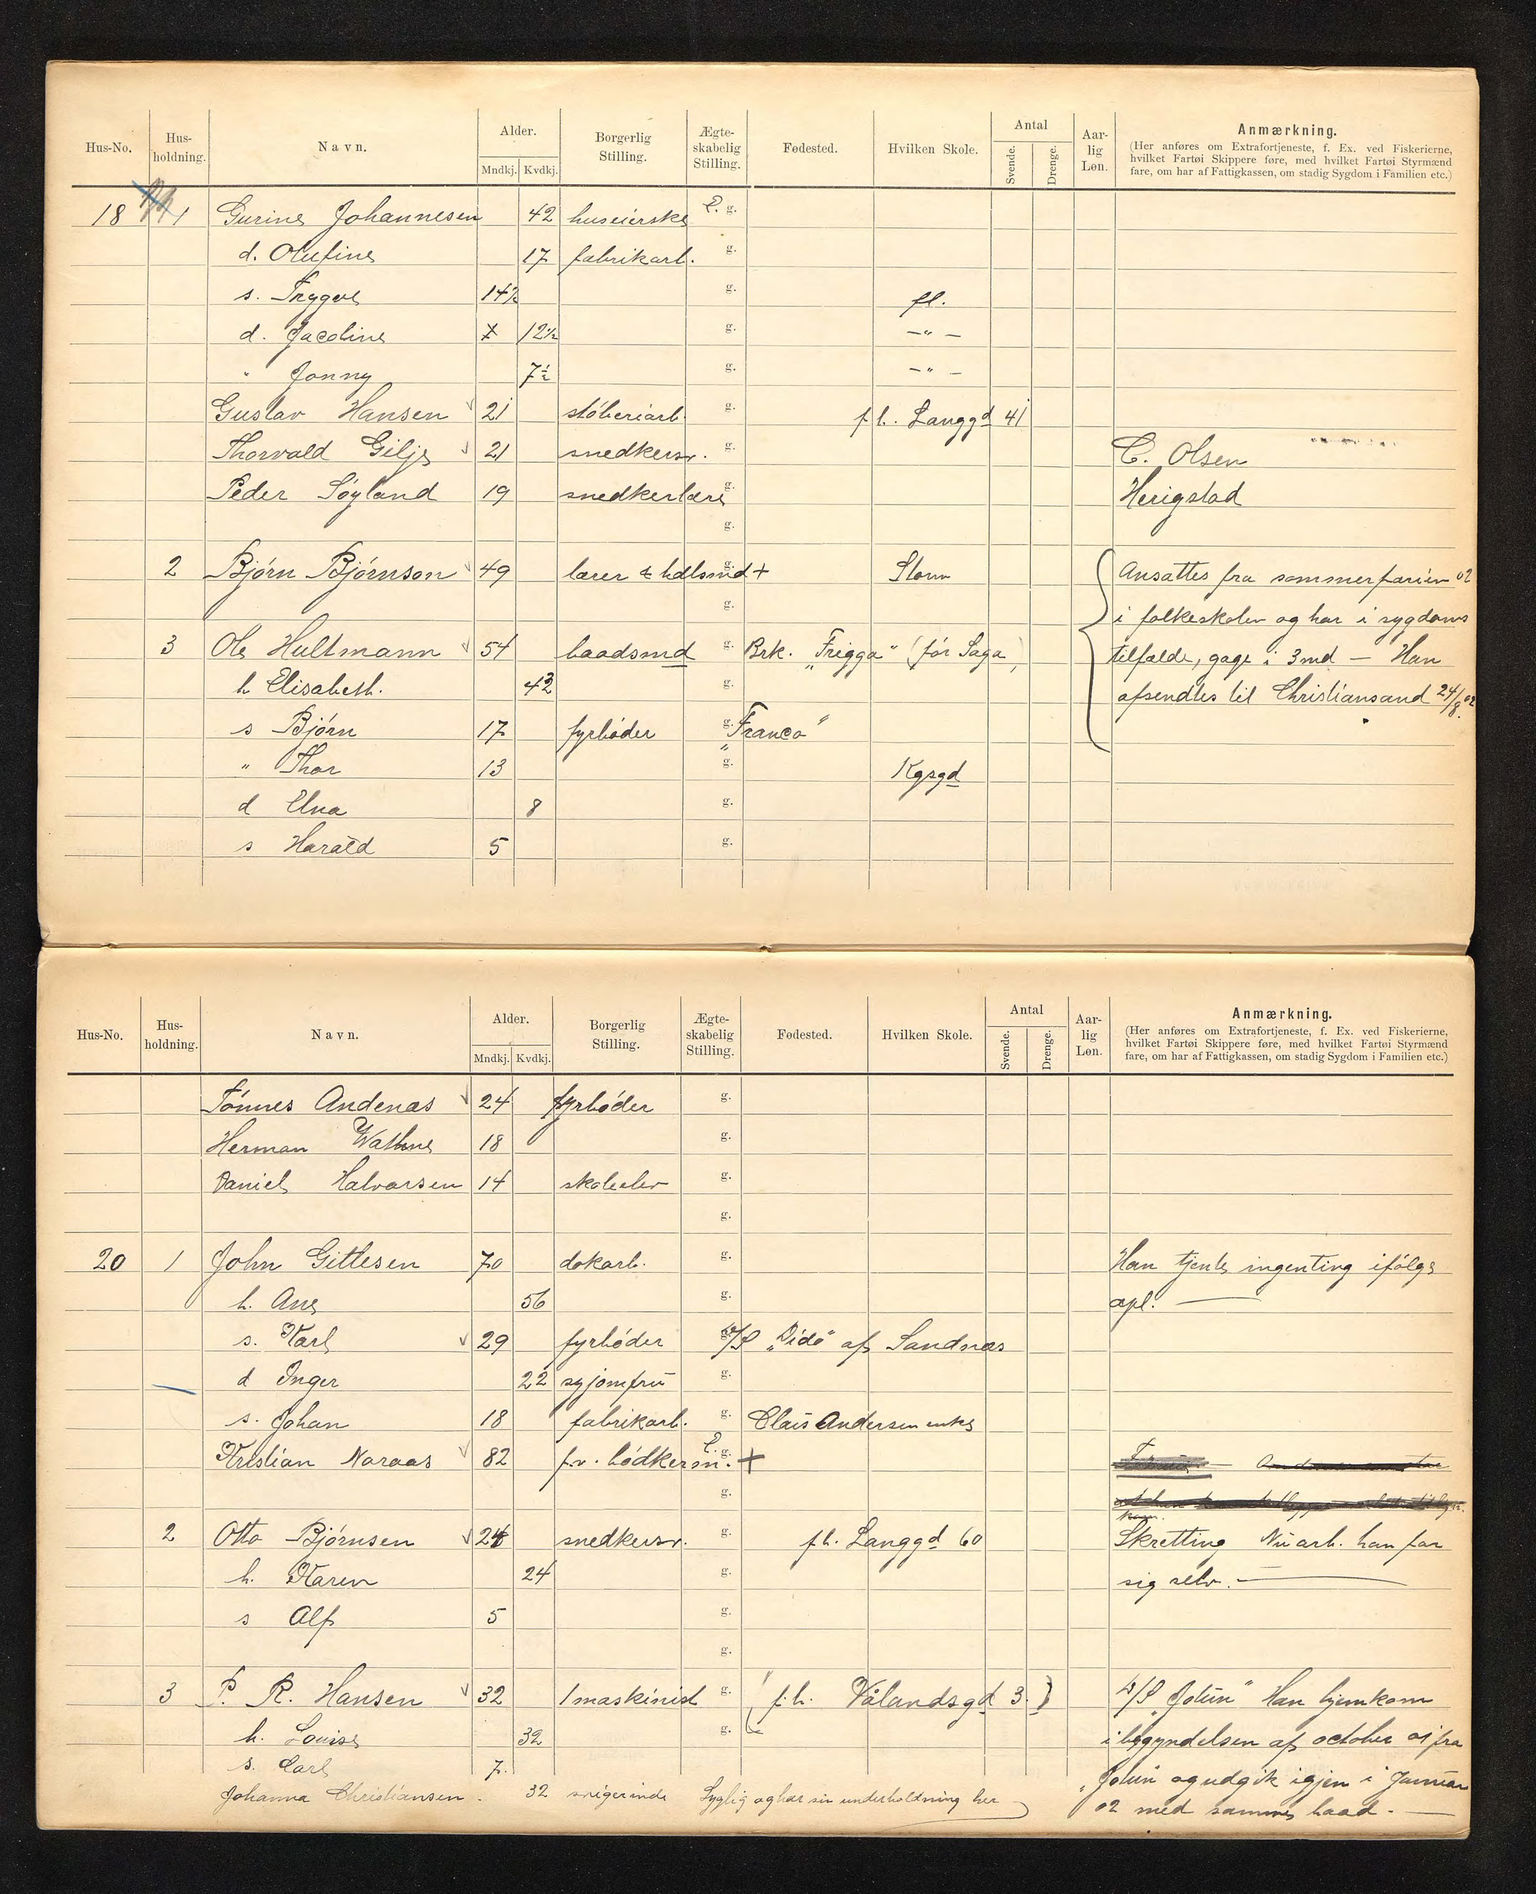 Hus-No. Hus-holdning. Navn. Alder. Mndkj. Kvdkj. Borgerlig Stilling. Ægte-skabelig Stilling. Fødested. Hvilken Skole. Antal Svende. Drenge. Aar-lig Løn. Anmærkning.
(Her anføres om Extrafortjeneste, f. Ex. ved Fiskerierne,
hvilket Fartøi Skippere føre, med hvilket Fartøi Styrmænd
fare, om har af Fattigkassen, om stadig Sygdom i Familien etc.)
18 1 Gurine Johannesen 42 huseierske E. g.
d. Olufine 17 fabrikarb. g.
s. Trygve 14½ g. fl.
d. Jacoline 12½ g. –"–
" Jonny 7½ g. –"–
Gustav Hansen 21 støberiarb. g. f.h. Langgd 41
Thorvald Gilje 21 snedkersv. g. C. Olsen
Peder Søyland 19 snedkerlære g. Herigstad
g.
2 Bjørn Bjørnson 49 lærer & hdlsmd g. + Storm Ansattes fra sommerfærien 02
g. i folkeskolen og har i sygdoms
3 Ole Hultmann 54 baadsmd g. Brk. "Frigga" (før Saga) tilfælde, gage i 3 md – Han
h Elisabeth. 42 g. afsendtes til Christiansand 24/8 02.
s Bjørn 17 fyrbøder g. "Franco"
" Thor 13 g. Kgsgd
d Elna 8 g.
s Harald 5 g.
Hus-No. Hus-holdning. Navn. Alder. Mndkj. Kvdkj. Borgerlig Stilling. Ægte-skabelig Stilling. Fødested. Hvilken Skole. Antal Svende. Drenge. Aar-lig Løn. Anmærkning.
(Her anføres om Extrafortjeneste, f. Ex. ved Fiskerierne,
hvilket Fartøi Skippere føre, med hvilket Fartøi Styrmænd
fare, om har af Fattigkassen, om stadig Sygdom i Familien etc.)
Tønnes Andenæs 24 fyrbøder g.
Herman Wathne 18 g.
Daniel Halvorsen 14 skoleelev g.
g.
20 1 John Gittesen 70 dokarb. g. Han tjente ingenting ifølge
h. Ane 56 g. opl.
s. Karl 29 fyrbøder g. D/S "Dido" af Sandnæs
d Inger 22 syjomfru g.
s. Johan 18 fabrikarb. g. Claus Andersen enke
Kristian Noraas 82 f.v. bødkersv. E. g. +
g.
2 Otto Bjørnsen 24 snedkersv. g. f.h. Langgd 60 Skretting Nu arb. han for
h. Karen 24 g. sig selv.
s Alf 5 g.
g.
3 P. R. Hansen 32 1 maskinist g. (f.h. Vålandsgd 3.) D/S "Jotun" Han hjemkom
h. Louise 32 g. i begyndelsen af october 01 fra
s. Carl 7. "Jotun" og udgik igjen i Januar
Johanna Christiansen. 32 Syglig og har sin underholdning her 02 med samme baad.